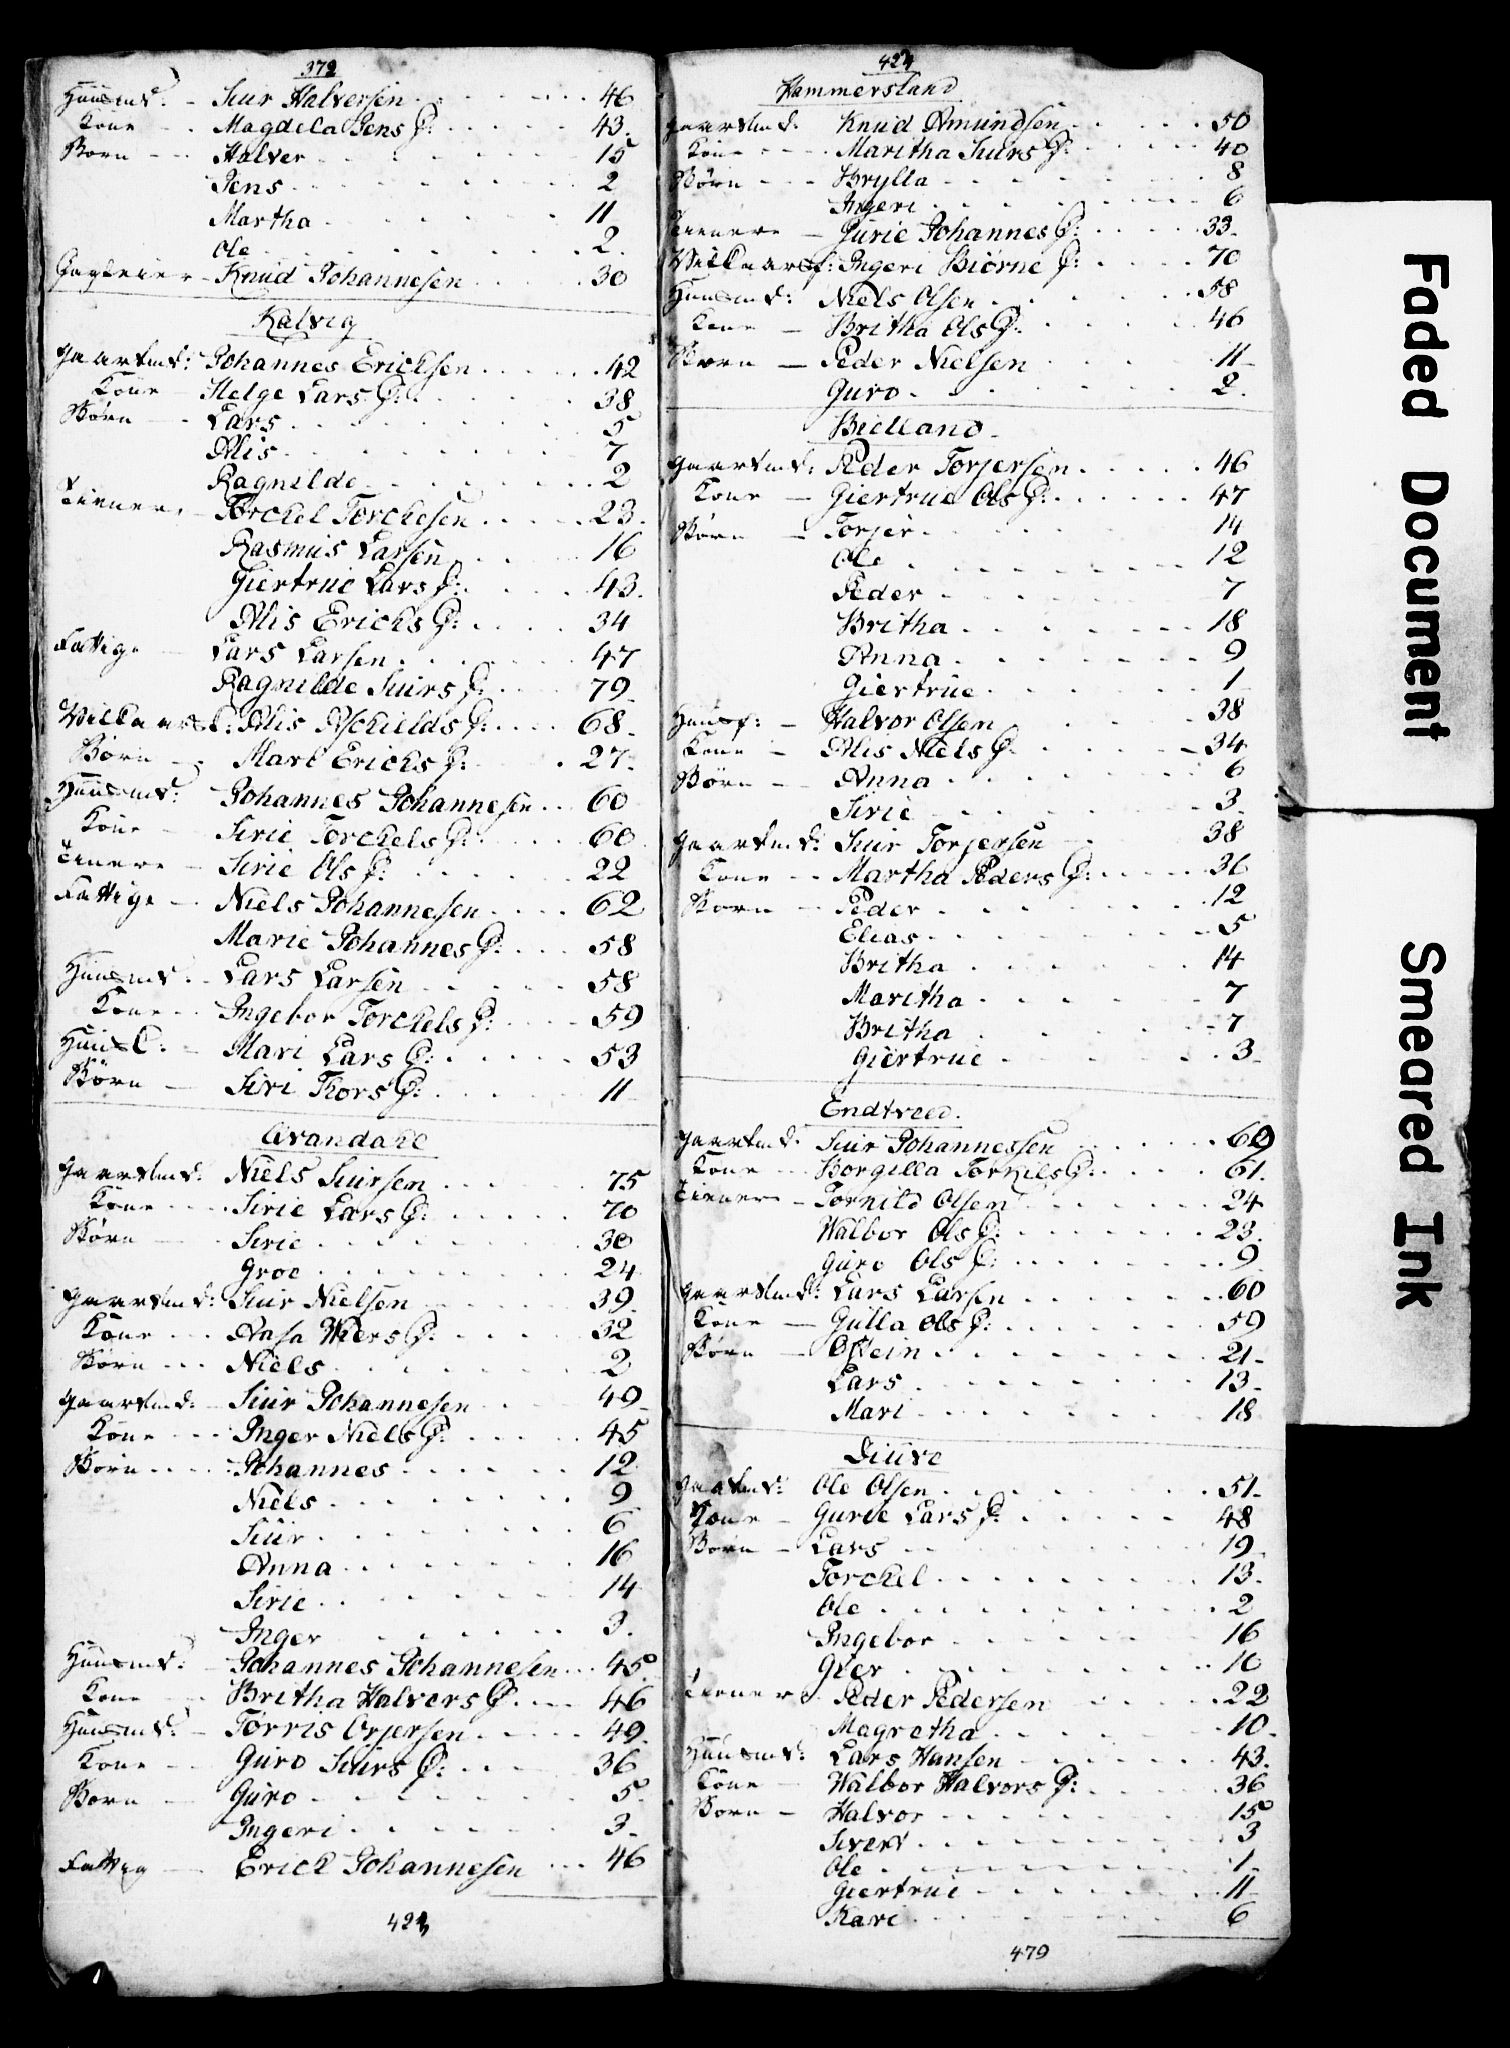 372
Huusmd: - Siur Halversen 46
Kone Magdela Jens D: 43.
Børn Halver 15
Jens 2
Martha 11
Ole 2.
Knud Johannesen 30
Kalvig
Gaardmd: Johannes Ericksen 42
Kone Helge Lars D: 38
Børn Lars 5
Alis 7
Ragnilde 2
Tienere Torckel Torckesen 23.
Rasmus Larsen 16
Giertrue Lars D: 43.
Alis Ericks D: 34
Fattige Lars Larsen 47
Ragnilde Siurs D: 79
Alis Aschields D: 68
Børn Mari Ericks D: 27.
Huusmd: Johannes Johannesen 60
Kone Sirie Torckels D: 60
Tienere Sirie Ols D: 22
Fattige Niels Johannesen 62
Marie Johannes D: 58
Huusmd: Lars Larsen 58
Kone Ingebor Torckels D: 59
Mari Lars D: 53
Børn Siri Thors D: 11
Arandale
Gaardmd: Niels Siursen 75
Kone Sirie Lars D: 70
Børn Sirie 30
Groe 24
Gaardmd: Siur Nielsen 39
Kone Aasa Wiers D: 32
Børn Niels 2
Gaardmd: Siur Johannesen 49
Kone Inger Niels D: 45
Børn Johannes 12
Niels 9
Siur 6
Anna 16
Sirie 14
Inger 3.
Huusmd: Johannes Johannesen 45
Kone Britha Halvers D 46
Huusmd: Torris Orjersen 49.
Kone Guro Siurs D: 36
Børn Guro 5
Ingeri 3.
Fattig Erick Johannesen 46
424
424
Hammersland
Gaardmd: Knud Amundsen 50
Kone Maritha Siurs D: 40
Børn Brylla 8
Ingeri 6
Tienere Gurie Johannes D: 33.
Ingeri Biørne D: 70
Huusmd: Niels Olsen 58
Kone Britha Ols D: 46
Børn Peder Nielsen 11
Guro 2.
Bielland
Gaardmd: Peder Torjersen 46
Kone Giertrue Ols D: 47
Børn Torjer 14
Ole 12
Peder 7
Britha 18
Anna 9
Giertrue 1
Halvor Olsen 38
Kone Alis Niels D. 34
Børn Anna 6
Sirie 3
Gaardmd: Siur Torjersen 38
Kone Martha Peders D: 36
Børn Peder 12
Elias 5
Britha 14
Maritha 7
Britha 7
Giertrue 3
Endtveed.
Gaardmd: Siur Johannessen 60
Kone Borgilla Torkels D: 61.
Tienere Tornild Olsen 24
Walbor Ols D: 23.
Guro Ols D: 9
Gaardmd: Lars Larsen 60
Kone Gulla Ols D: 59
Børn Østein 21
Lars 13
Mari 18
Diuve
Gaardmd: Ole Olsen 51.
Kone Gurie Lars D: 48
Børn Lars 19
Torckel 13.
Ole 2
Ingebor 16
Gier 10
Tienere Peder Pedersen 22
Magretha 10.
Huusmd: Lars Hansen 43.
Kone Walbor Halvors D: 36
Børn Halvor 15
Sivert 3
Ole 1
Giertrue 11
Kari 6
479
Faded Document
Smeared Ink